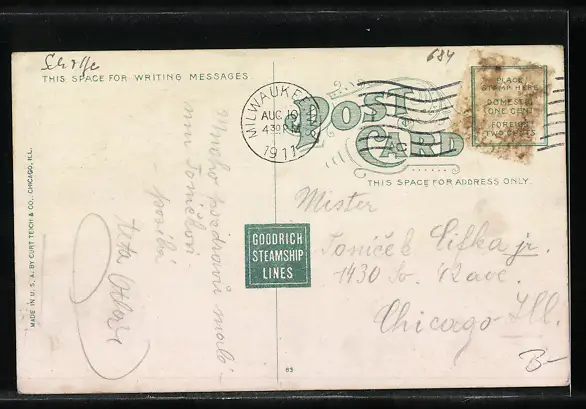 Schiffe
684
THIS SPACE FOR WRITING MESSAGES
MILWAUKEE, WIS.
AUG 10
430 PM
1911
POST
CARD
PLACE
STAMP HERE
DOMESTIC
ONE CENT
FOREIGN
TWO CENTS
THIS SPACE FOR ADDRESS ONLY
Mnoho pozdravů
Toničkovi
posílá
teta
GOODRICH
STEAMSHIP
LINES
Mister
Toníček Cifka jr.
1430 So.
Chicago Ill.
MADE IN U. S. A. BY CURT TEICH & CO., CHICAGO, ILL.
B-